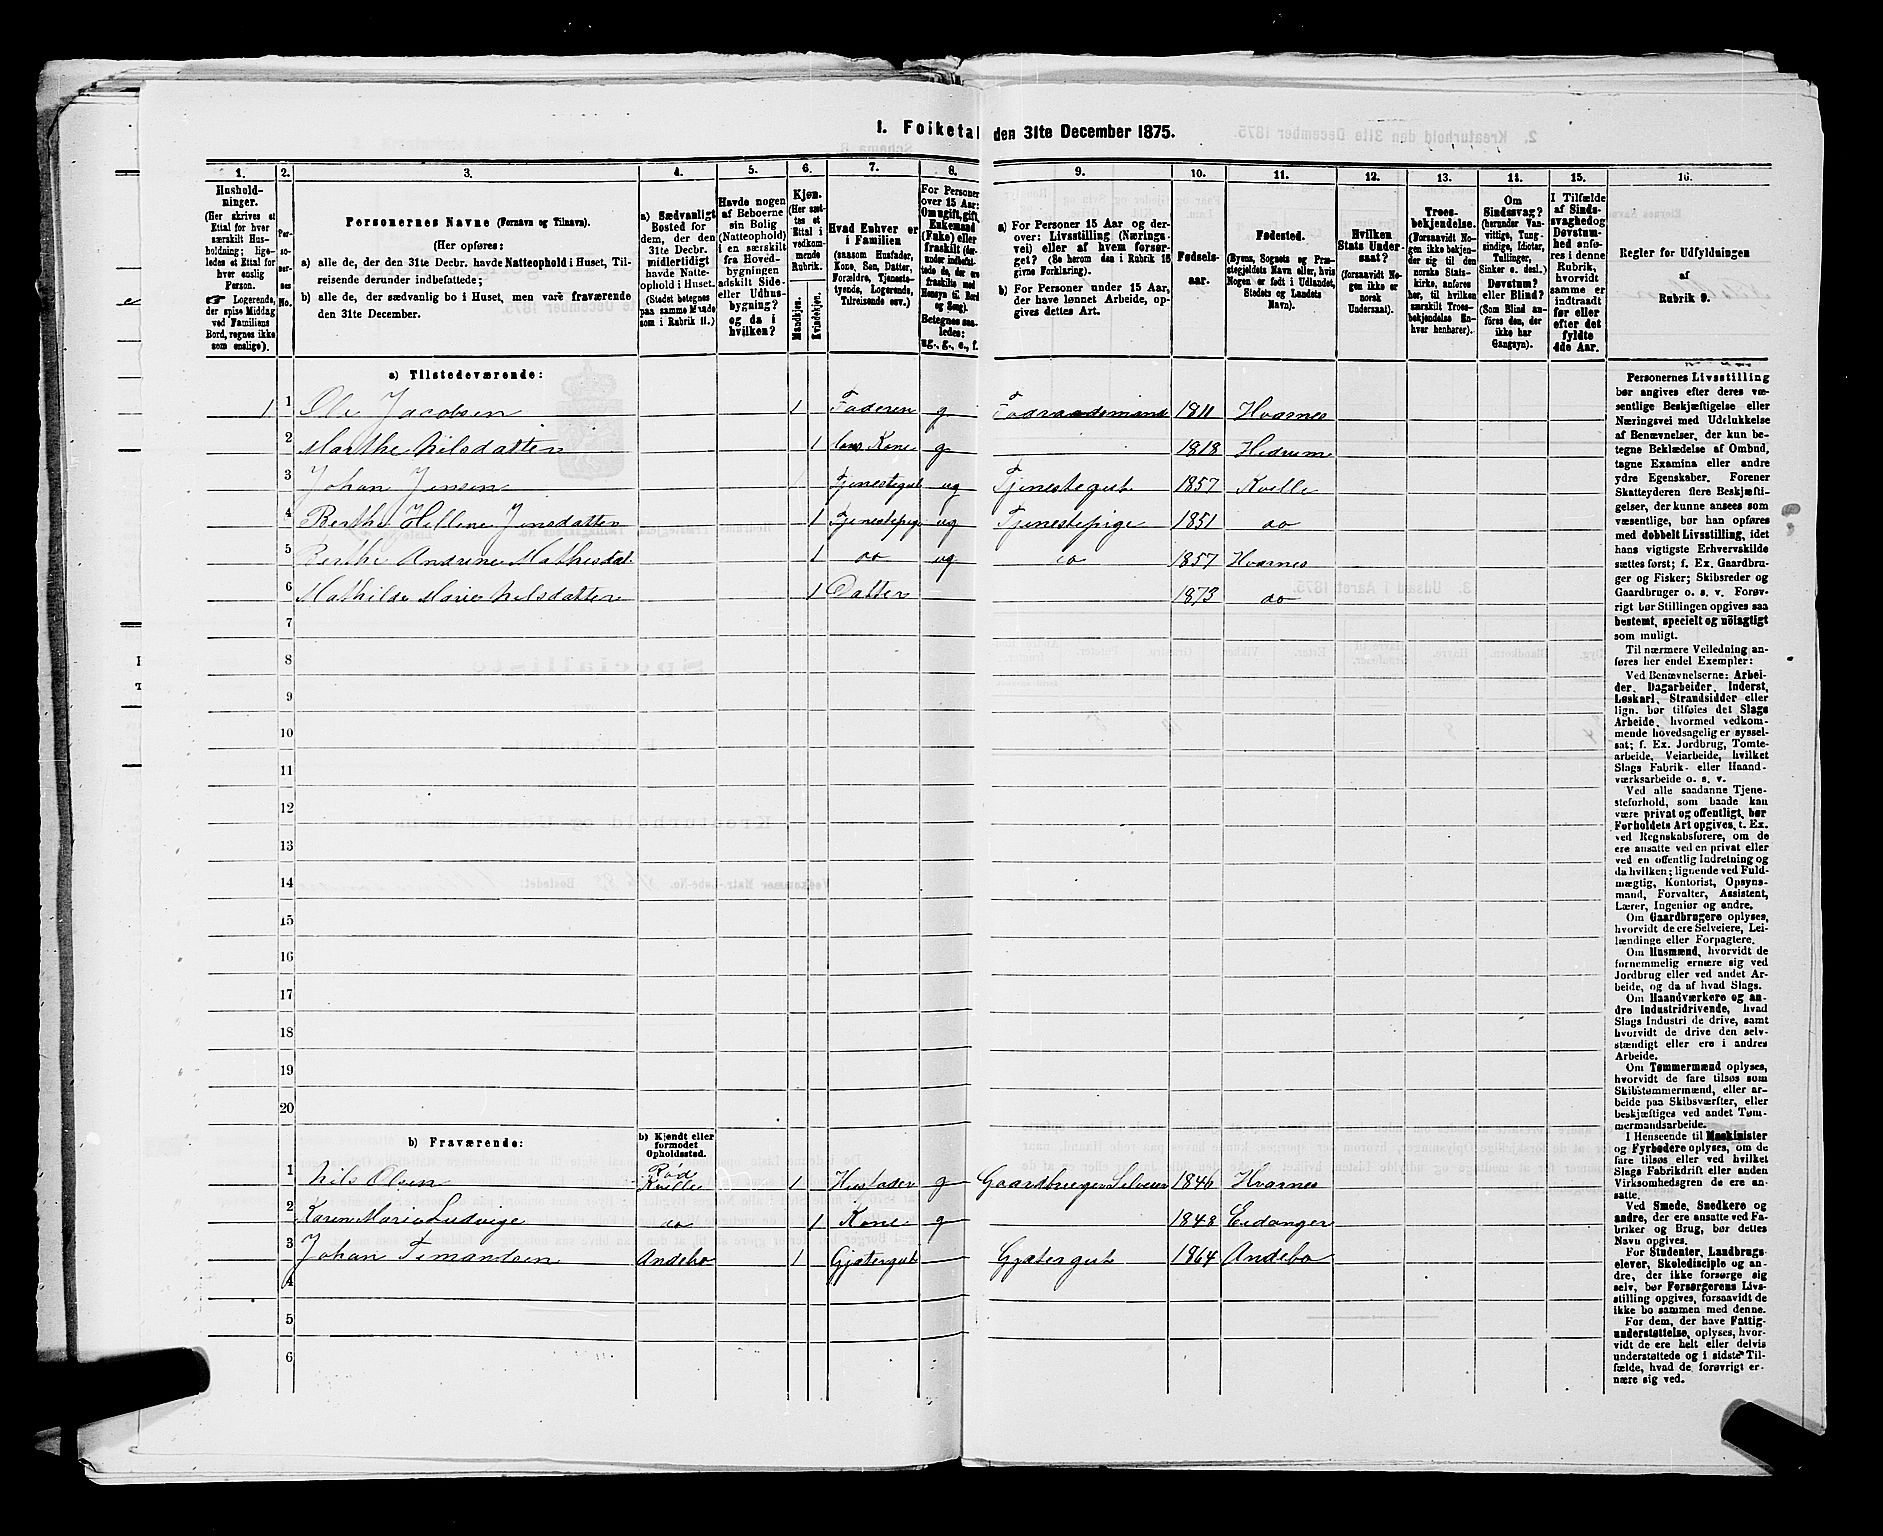 1. Folketal den 31te December 1875.
1. 2. 3. 4. 5. 6. 7. 8. 9. 10. 11. 12. 13. 14. 15. 16.
Husholdninger.
(Her skrives et Ettal for hver særskilt Husholdning; ligeledes et Ettal for hver enslig Person.
☛ Logerende, der spise Middag ved Familiens Bord, regnes ikke som enslige).
Personernes No.
Personernes Navne (Fornavn og Tilnavn).
(Her opføres:
a) alle de, der den 31te Decbr. havde Natteophold i Huset, Tilreisende derunder indbefattede;
b) alle de, der sædvanlig bo i Huset, men vare fraværende den 31te December.
a) Sædvanligt Bosted for dem, der den 31te Decbr. midlertidigt havde Natteophold i Huset.
(Stedet betegnes paa samme Maade som i Rubrik 11.)
Havde nogen af Beboerne sin Bolig (Natteophold) i en særskilt fra Hovedbygningen adskilt Side- eller Udhusbygning? og da i hvilken?
Kjøn.
(Her sættes et Ettal i vedkommende Rubrik.
Mandkjøn.
Kvindekjøn.
Hvad Enhver er i Familien
(saasom Husfader, Kone, Søn, Datter, Forældre, Tjenestetyende, Logerende, Tilreisende osv.)
For Personer over 15 Aar: Om ugift, gift, Enkemand (Enke) eller fraskilt
Betegnes saaledes: ug., g., e., f.
a) For Personer 15 Aar og derover: Livsstilling (Næringsvei) eller af hvem forsørget? (Se herom den i Rubrik 16 givne Forklaring).
b) For Personer under 15 Aar, der have lønnet Arbeide, opgives dettes Art.
Fødselsaar.
Fødested.
(Byens, Sognets og Præstegjeldets Navn eller, hvis Nogen er født i Udlandet, Stedets og Landets Navn).
Hvilken Stats Undersaat?
(forsaavidt Nogen ikke er norsk Undersaat).
Troesbekjendelse.
(Forsaavidt Nogen ikke bekjender sig til den norske Statskirke, anføres her, til hvilken særskilt Troesbekjendelse Enhver henhører).
Om Sindssvag?
(herunder Vanvittige, Tungsindige, Idioter, Tullinger, Sinker o. desl.)
Døvstum? eller Blind?
(Som Blind anføres den, der ikke har Gangsyn).
I Tilfælde af Sindssvaghed og Døvstumhed anføres i denne Rubrik, hvorvidt samme er indtraadt før eller efter det fyldte 4de Aar.
Regler for Udfyldningen af Rubrik 9.
a) Tilstedeværende:
1 1 Ole Jacobsen 1 Faderen g Fodraadsmand 1811 Hvarnes
2 Marthe Nilsdatter 1 hans Kone g 1818 Hedrum
3 Johan Jensen Tjenestegut ug Tjenestegut 1857 Kvelle
4 Berthe Hellene Jensdatter 1 Tjenestepige ug Tjenestepige 1851 do
5 Berthe Andrine Mathisdat. 1 do ug do 1857 Hvarnes
6 Mathilde Marie Nilsdatter 1 Datter 1873 do
7
8
9
10
11
12
13
14
15
16
17
18
19
20
b) Fraværende:
b) Kjendt eller formodet Opholdssted.
1 Nils Olsen Røde Kvelle 1 Husfader g Gaardbruger Selveier 1846 Hvarnes
2 Karen Marie Ludvige do 1 Kone g 1848 Eidanger
3 Johan Temandsen Andebo 1 Gjætergut Gjætergut 1864 Andebo
4
5
6
Personernes Livsstilling
bør angives efter deres væsentlige Beskjæftigelse eller Næringsvei med Udelukkelse af Benævnelser, der kun betegne Beklædelse af Ombud, tagne Examina eller andre ydre Egenskaber. Forener Skatteyderen flere Beskjæftigelser, der kunne ansees som væsentlige, bør han opføres med dobbelt Livsstilling, idet hans vigtigste Erhvervskilde sættes først; f. Ex. Gaardbruger og Fisker; Skibsreder og Gaardbruger o. s. v. Forøvrigt bør Stillingen opgives saa bestemt, specielt og nöiagtigt som muligt.
Til nærmere Veiledning anføres her endel Exempler:
Ved Benævnelserne: Arbeider, Dagarbeider, Inderst, Løskarl, Strandsidder eller lign. bør tilføies det Slags Arbeide, hvormed vedkommende hovedsagelig er sysselsat; f. Ex. Jordbrug, Tomtearbeide, Veiarbeide, hvilket Slags Fabrik- eller Haandværksarbeide o. s. v.
Ved alle saadanne Tjenesteforhold, som baade kan være privat og offentligt, bør Forholdets Art opgives, t. Ex. ved Regnskabsførere, om de ere ansatte ved en privat eller ved en offentlig Indretning og da hvilken; lignende ved Fuldmægtig, Kontorist, Opsynsmand, Forvalter, Assistent, Lærer, Ingeniør og andre.
Om Gaardbrugere oplyses, hvorvidt de ere Selveiere, Leilændinge eller Forpagtere.
Om Husmænd, hvorvidt de fornemmelig ernære sig ved Jordbrug eller ved andet Arbeide, og da af hvad Slags.
Om Haandværkere og andre Industridrivende, hvad Slags Industri de drive, samt hvorvidt de drive den selvstændigt eller ere i andres Arbeide.
Om Tømmermænd oplyses, hvorvidt de fare tilsøs som Skibstømmermænd, eller arbeide paa Skibsværfter, eller beskjæftiges ved andet Tømmermandsarbeide.
I Henseende til Maskinister og Fyrbødere oplyses, om de fare tilsøs eller ved hvilket Slags Fabrikdrift eller anden Virksomhedsgren de ere ansatte.
Ved Smede, Snedkere og andre, der ere ansatte ved Fabriker og Brug, bør dettes Navn opgives.
For Studenter, Landbrugselever, Skoledisciple og andre, der ikke forsørge sig selv, bør Forsørgerens Livsstilling opgives, forsaavidt de ikke bo sammen med denne.
For dem, der have Fattigunderstøttelse, oplyses, hvorvidt de ere helt eller delvis understøttede og i sidste Tilfælde, hvad de forøvrigt ernære sig ved.